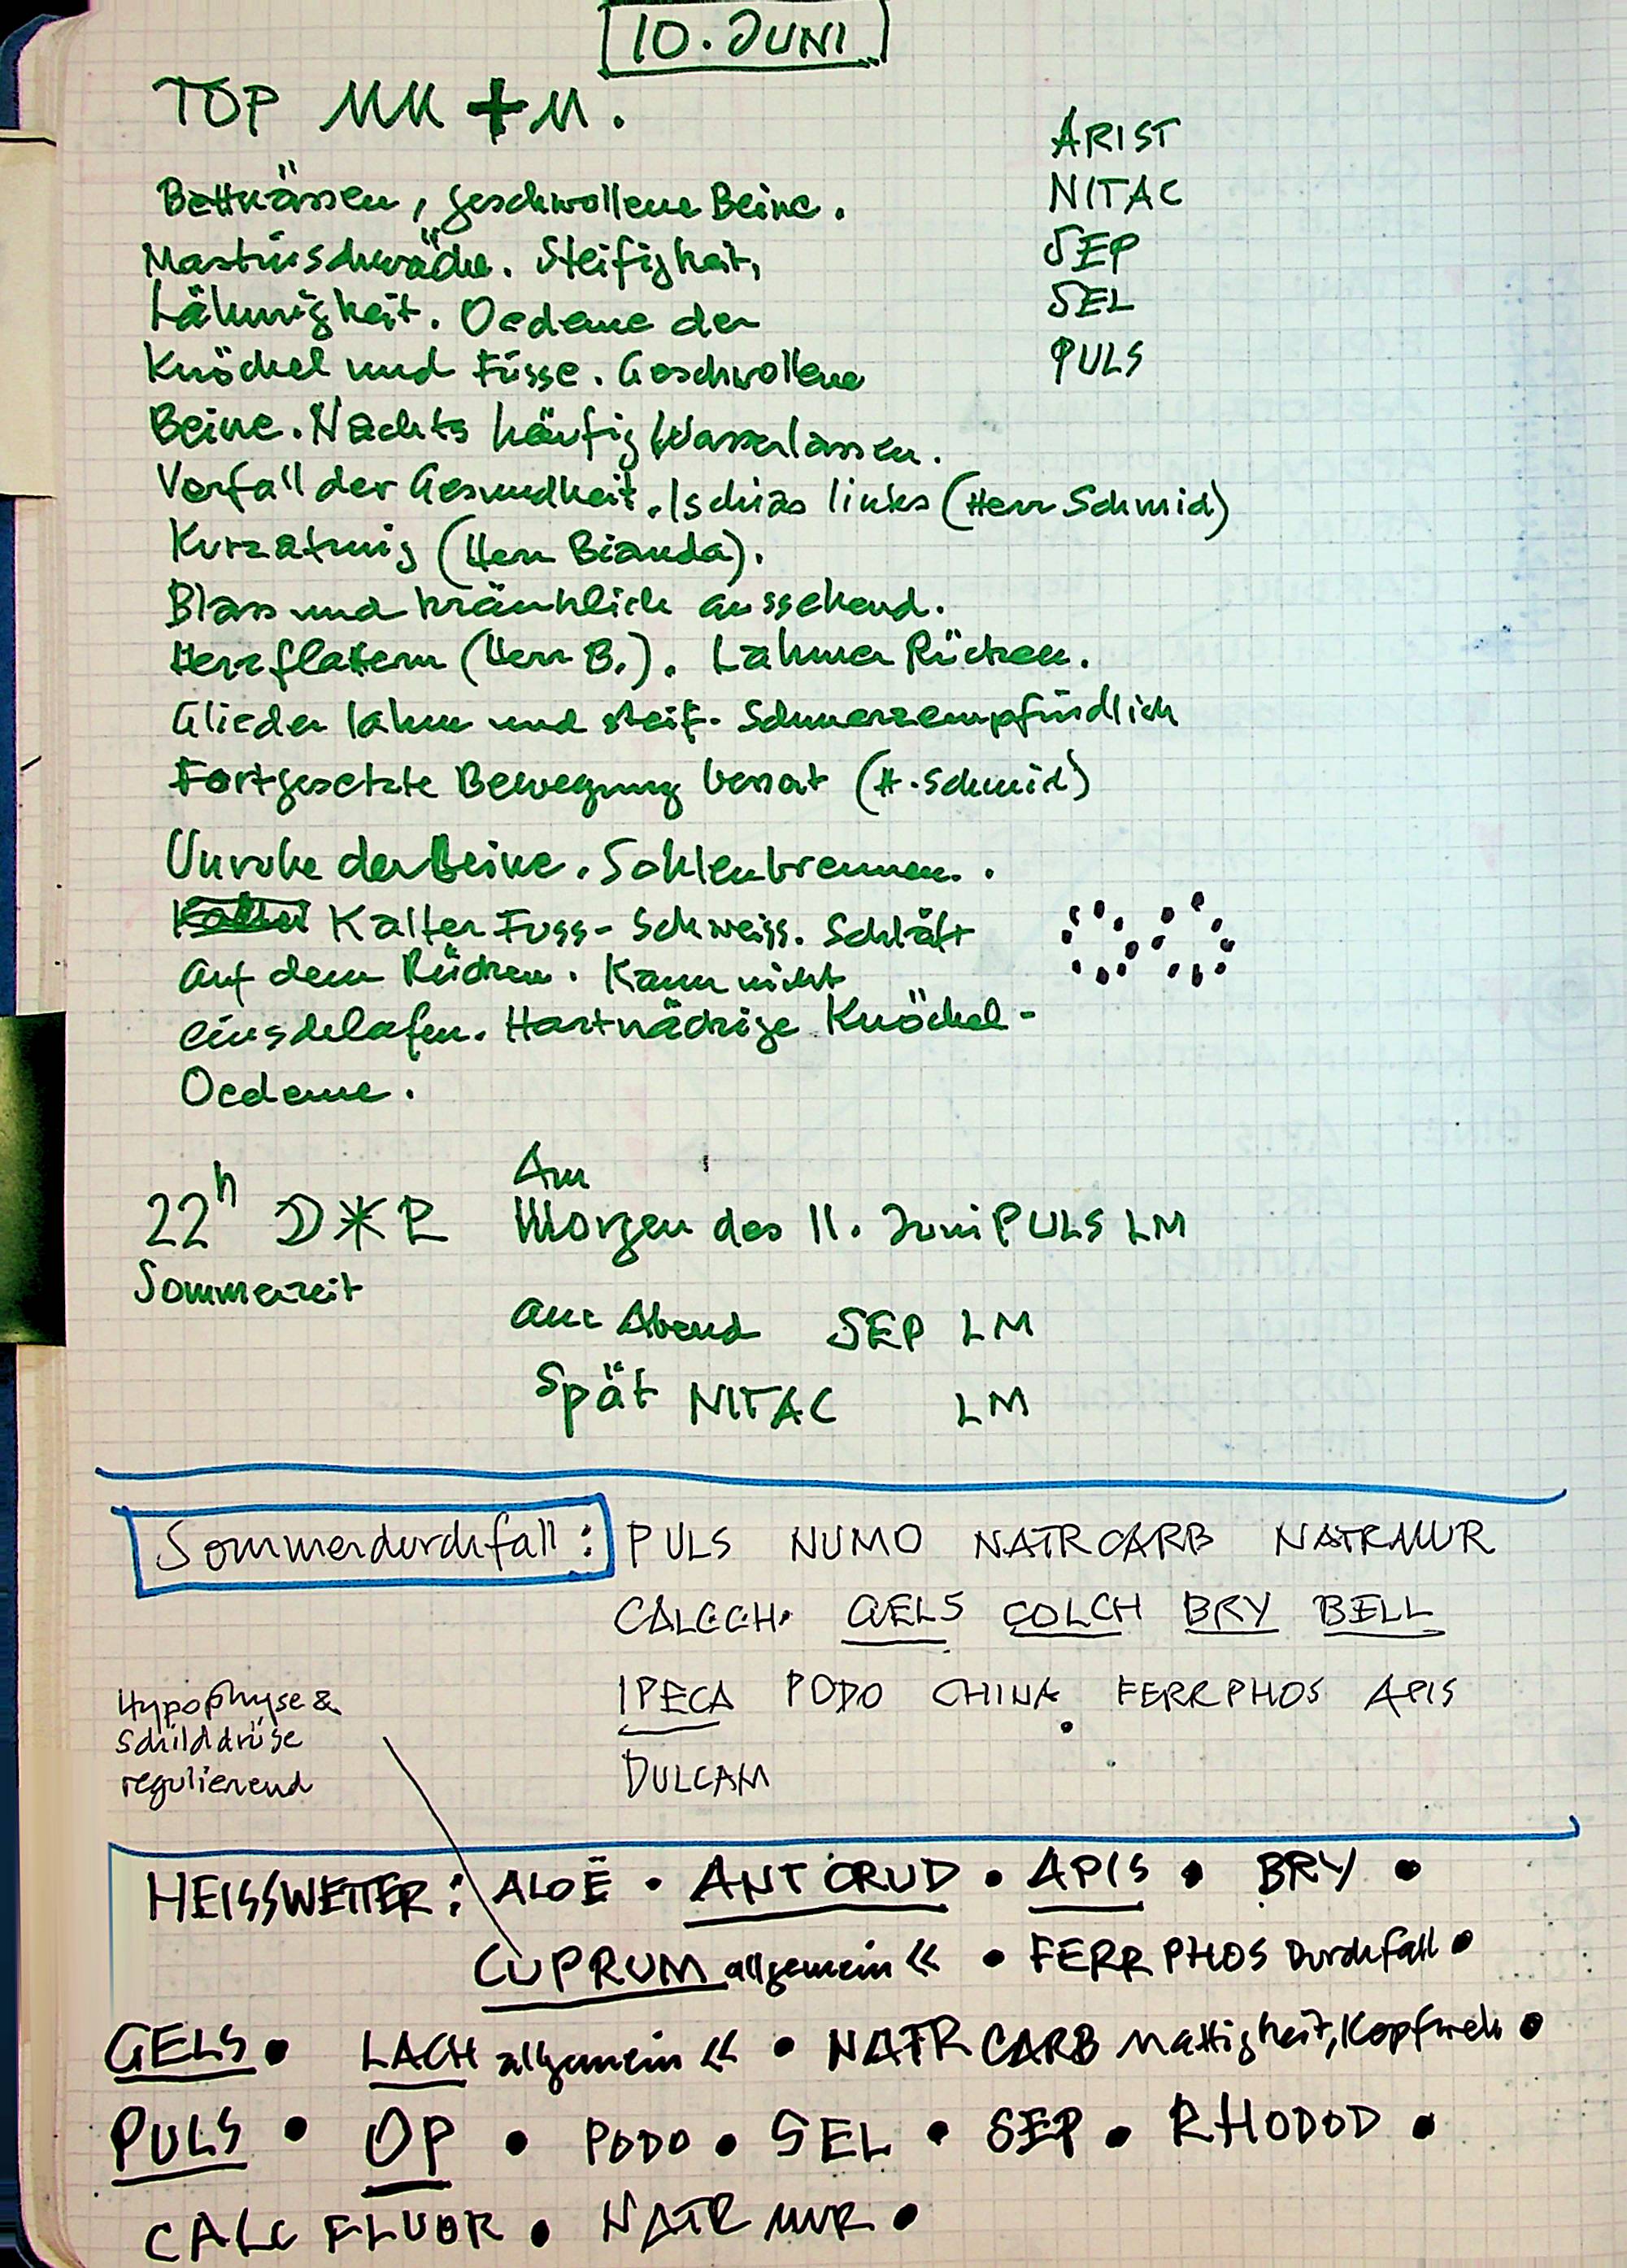 10. JUNI
TOP MM + M.
ARIST
NITAC
SEP
SEL
PULS
Bettnässen, geschwollene Beine.
Mastdarmschwäche. Steifigkeit,
Lähmigkeit. Oedeme der
Knöchel und Füsse. Geschwollene
Beine. Nachts häufig Wasserlassen.
Verfall der Gesundheit. Ischias links (Herr Schmid)
Kurzatmig (Herr Bianda).
Blass und kränklich aussehend.
Herzflattern (Herr B.). Lahmer Rücken.
Glieder lahm und steif. Schmerzempfindlich
Fortgesetzte Bewegung bessert (H. Schmid)
Unruhe der Beine. Sohlenbrennen..
Kalter Fuss-Schweiss. Schläft
auf dem Rücken. Kann nicht
einschlafen. Hartnäckige Knöchel-
Oedeme.
22h
Sommerzeit
Am
Morgen des 11. Juni PULS LM
am Abend SEP LM
Spät NITAC LM
Sommerdurchfall: PULS NUMO NATRCARB NATRMUR
CALCCH. GELS COLCH BRY BELL
IPECA PODO CHINA FERRPHOS APIS
DULCAM
Hypophyse &
Schilddrüse
regulierend
HEISSWETTER: ALOË • ANT CRUD • APIS • BRY •
CUPRUM allgemein « • FERR PHOS Durchfall •
GELS • LACH allgemein « • NATR CARB Mattigkeit, Kopfweh •
PULS • OP • PODO • SEL • SEP • RHODOD •
CALC FLUOR • NATR MUR •